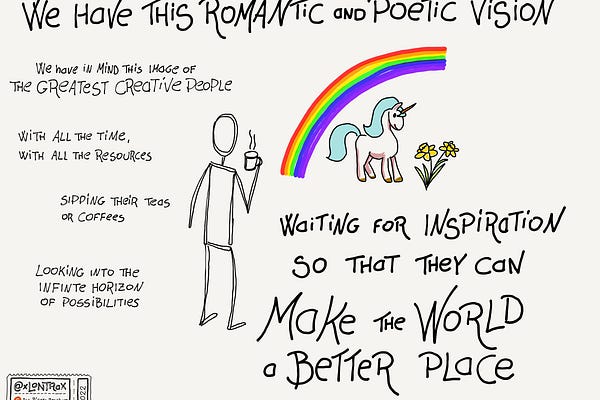 We Have THiS ROMANTiC AND POeTiC ViSiON
We have iN MiND THiS iMAGE OF
THe GREATEST CREATiVe PEOPLE
WiTH ALL THE TiME,
WiTH ALL THE RESOURCES
SiPPiNG THEiR TEAS
OR COFFEES
LOOKiNG iNTO THE
iNFiNTE HORiZON
OF POSSiBiLiTiES
WaiTiNG FOR INSPiRATiON
SO THAT THEY CaN
Make THE WORLD
a BeTTER PLaCe
@xLONTRaX
2022